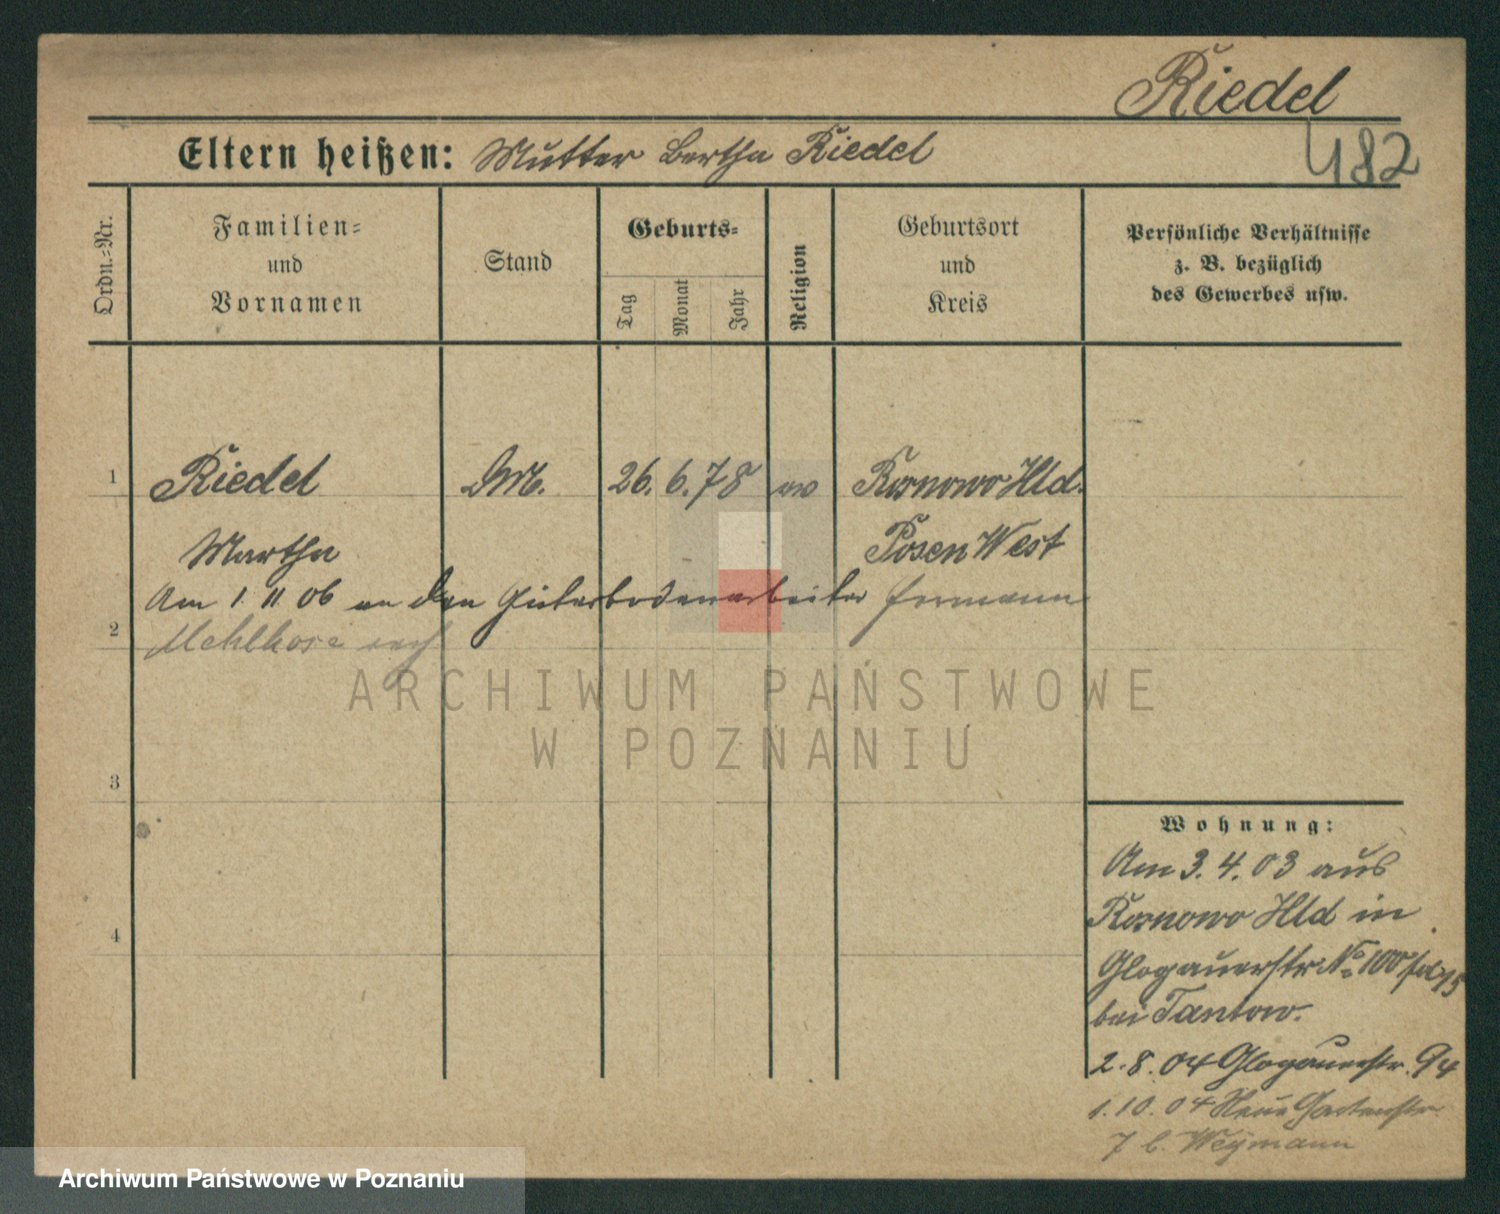 Riedel
482
Eltern heißen: Mutter Bertha Riedel
Ordn.-Nr.
Familien-
und
Vornamen
Stand
Geburts-
Tag
Monat
Jahr
Religion
Geburtsort
und
Kreis
Persönliche Verhältnisse
z. B. bezüglich
des Gewerbes usw.
1 Riedel 26. 6. 78 ev Rosnowo Hld.
Martha Posen West
Am 1. 11. 06 an den Güterbodenarbeiter Hermann
2 Mehlhose verh
ARCHIWUM PAŃSTWOWE
W POZNANIU
3
4
Wohnung:
Am 3. 4. 03 aus
Rosnowo Hld in
Glogauerstr. No 100
bei Tantow.
2. 8. 04 Glogauerstr. 94
1. 10. 04 Neue Gartenstr.
7 b. Weymann
Archiwum Państwowe w Poznaniu